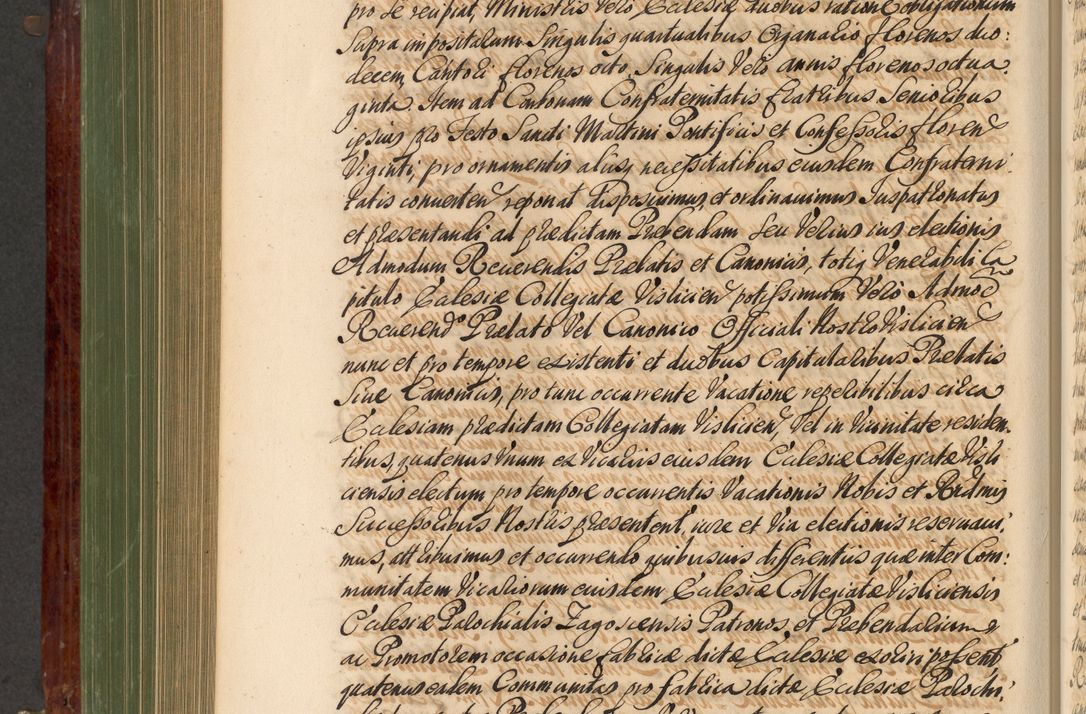 pro se recipiat, Ministris Vero Ecclesiæ duobus ratione obligationum
Supra impositarum Singulis quartualibus Organario florenos duo:
decem, Cantori florenos octo, Singulis Vero annis florenos octua:
ginta, Item ad Carbonam Confraternitatis fratribus Senioribus
ipsius pro Festo Sancti Martini Pontificis et Confessoris floren
Viginti, pro ornamentis aliisq necessitatibus eiusdem Confraterni:
tatis conuerten reponat disposuimus et ordinauimus Juspatronatus
et præsentandi ad prædictam Præbendam seu Verius ius electionis
Admodum Reuerendis Prælatis et Canonicis, totiq Venerabili Ca
pitulo Ecclesiæ Collegiatæ Vislicien potissimum Vero Admod
Reuerendo Prælato Vel Canonico Officiali Nostro Vislicien
nunc et pro tempore existenti et duobus Capitularibus Prælatis
Siue Canonicis, pro tunc occurrente Vacatione reperibilibus circa
Ecclesiam prædictam Collegiatam Vislicien, Vel in Vicinitate residen.
tibus, quatenus Vnum ex Vicariis eiusdem Ecclesiæ Collegiatæ Visli
ciensis electum pro tempore occurrentis Vacationis Nobis et Rndmis
Successoribus Nostris præsentent, iure et Via electionis reseruaui:
mus, attribuimus et occurrendo quibusuis differentiis quæ inter Com:
munitatem Vicariorum eiusdem Ecclesiæ Collegiatæ Visliciensis
Ecclesiæ Parochialis Zagoscensis Patronos, et Præbendarium
ac Promotorem occasione fabricæ dictæ Ecclesiæ exoriri possent,
quatenus eadem Communitas pro fabrica dictæ Ecclesiæ Parochi: